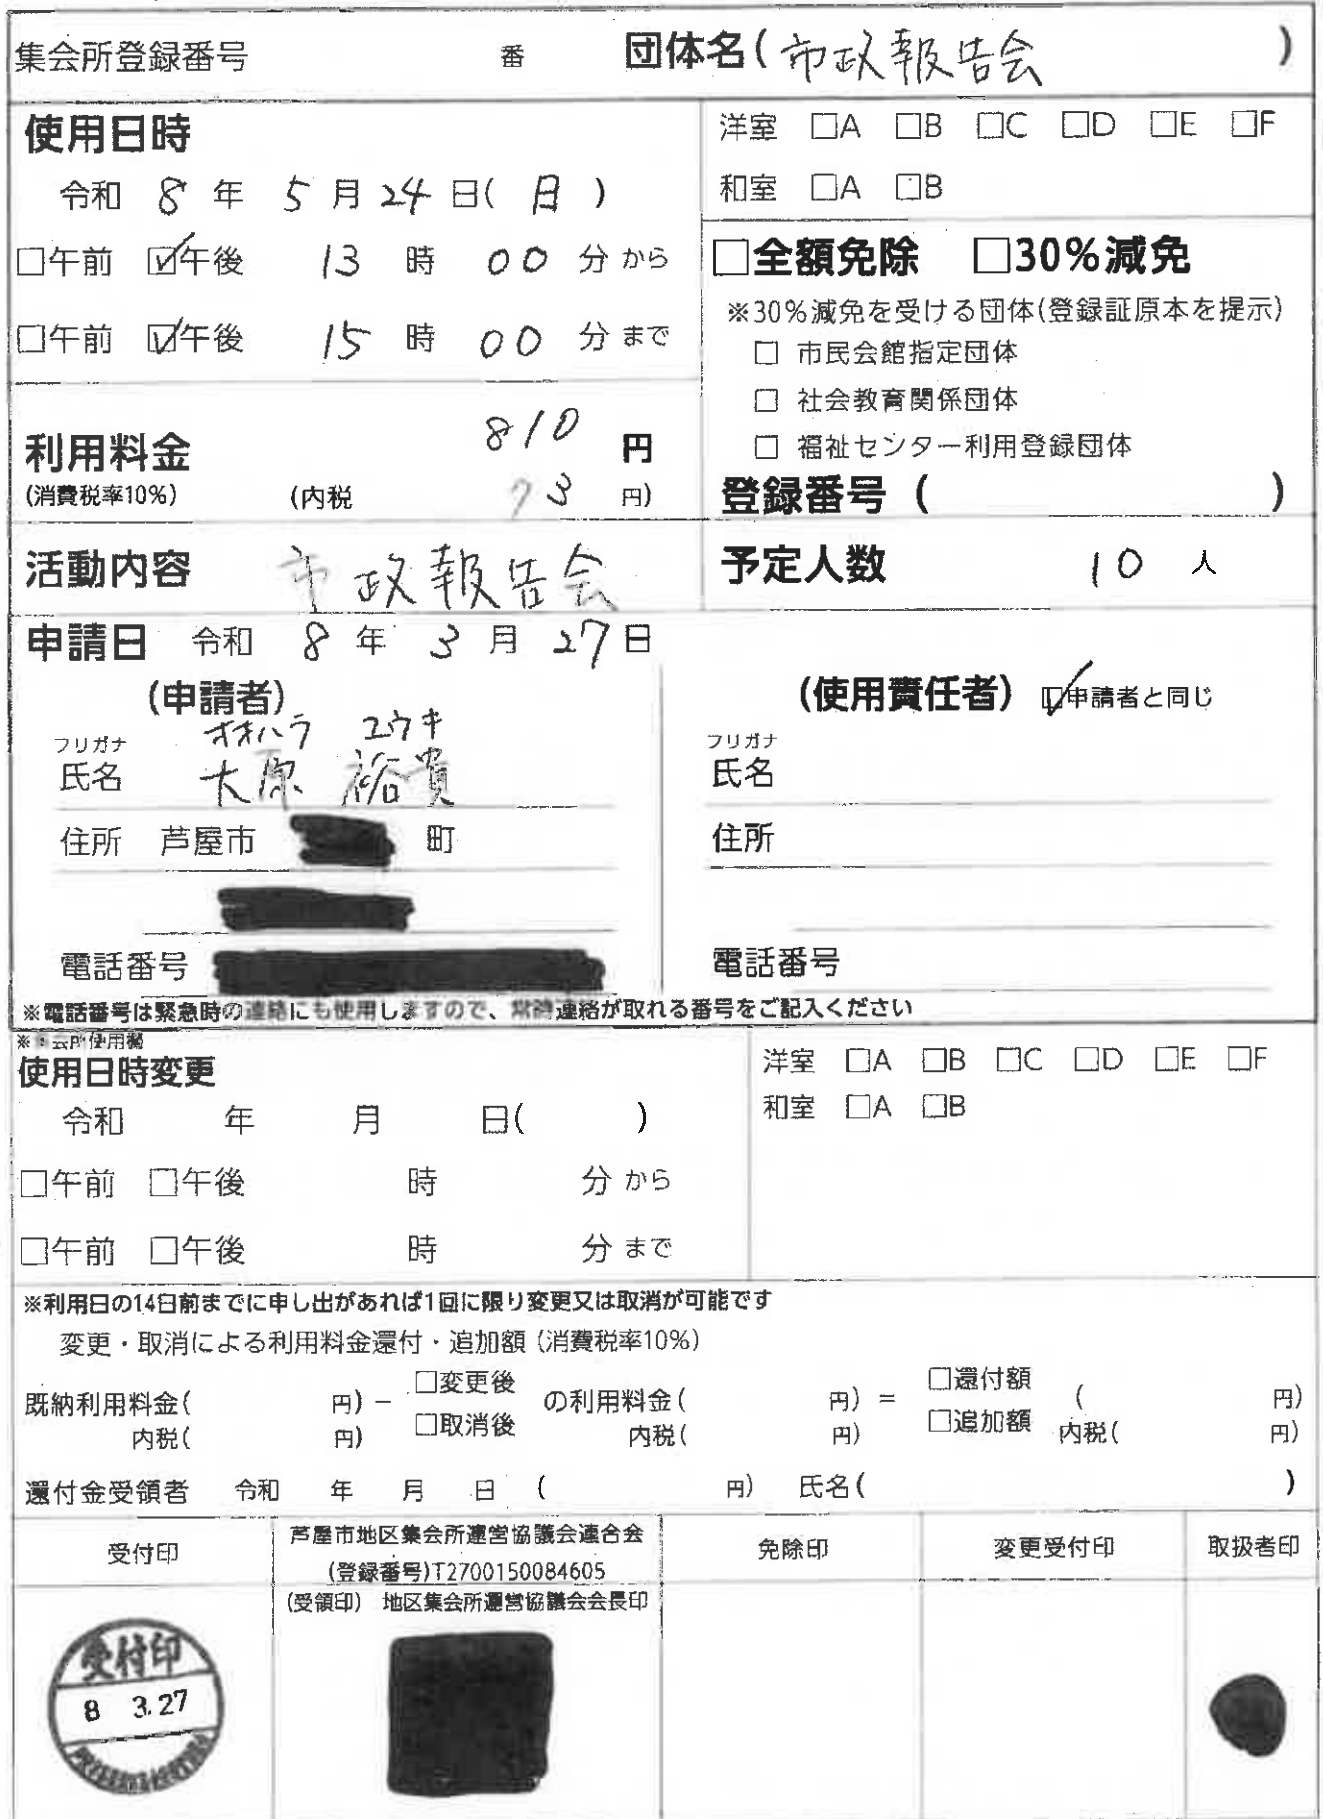 集会所登録番号 番 団体名(市政報告会)
使用日時
令和 8 年 5 月 24 日( 日 )
□午前 ☑午後 13 時 00 分 から
□午前 ☑午後 15 時 00 分 まで
洋室 □A □B □C □D □E □F
和室 □A □B
□全額免除 □30%減免
※30%減免を受ける団体(登録証原本を提示)
□ 市民会館指定団体
□ 社会教育関係団体
□ 福祉センター利用登録団体
登録番号 ( )
利用料金 810 円
(消費税率10%) (内税 73 円)
活動内容 市政報告会
予定人数 10 人
申請日 令和 8 年 3 月 27 日
(申請者)
フリガナ オオハラ ユウキ
氏名 大原 裕貴
住所 芦屋市 町
電話番号
(使用責任者) ☑申請者と同じ
フリガナ
氏名
住所
電話番号
※電話番号は緊急時の連絡にも使用しますので、常時連絡が取れる番号をご記入ください
使用日時変更
令和 年 月 日( )
□午前 □午後 時 分 から
□午前 □午後 時 分 まで
洋室 □A □B □C □D □E □F
和室 □A □B
※利用日の14日前までに申し出があれば1回に限り変更又は取消が可能です
変更・取消による利用料金還付・追加額 (消費税率10%)
既納利用料金( 円) − □変更後 □取消後 の利用料金( 円) = □還付額 □追加額 ( 円)
内税( 円) 内税( 円) 内税( 円)
還付金受領者 令和 年 月 日 ( 円) 氏名( )
受付印
芦屋市地区集会所運営協議会連合会
(登録番号)T2700150084605
(受領印) 地区集会所運営協議会会長印
免除印
変更受付印
取扱者印
受付印
8 3.27